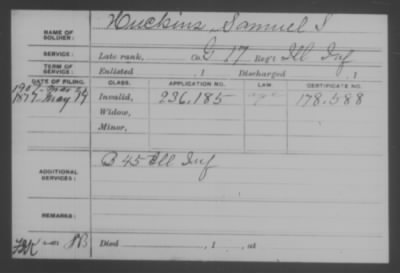 NAME OF SOLDIER: Huckins, Samuel S
SERVICE: Late rank, Co. G 17 Reg't Ill Inf
TERM OF SERVICE: Enlisted , 1 Discharged , 1
DATE OF FILING. CLASS. APPLICATION NO. LAW. CERTIFICATE NO.
1877 May Invalid, 236,185 178,588
Widow,
Minor,
ADDITIONAL SERVICES: B 45 Ill Inf
REMARKS:
Died , 1 , at